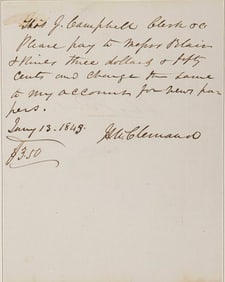 Thos J. Campbell Clerk &c
Please pay to Messrs Blair
& Rives three dollars & fifty
cents and charge the same
to my account for news pa-
pers.
Jany 13. 1845.
J A McClernand
$3.50